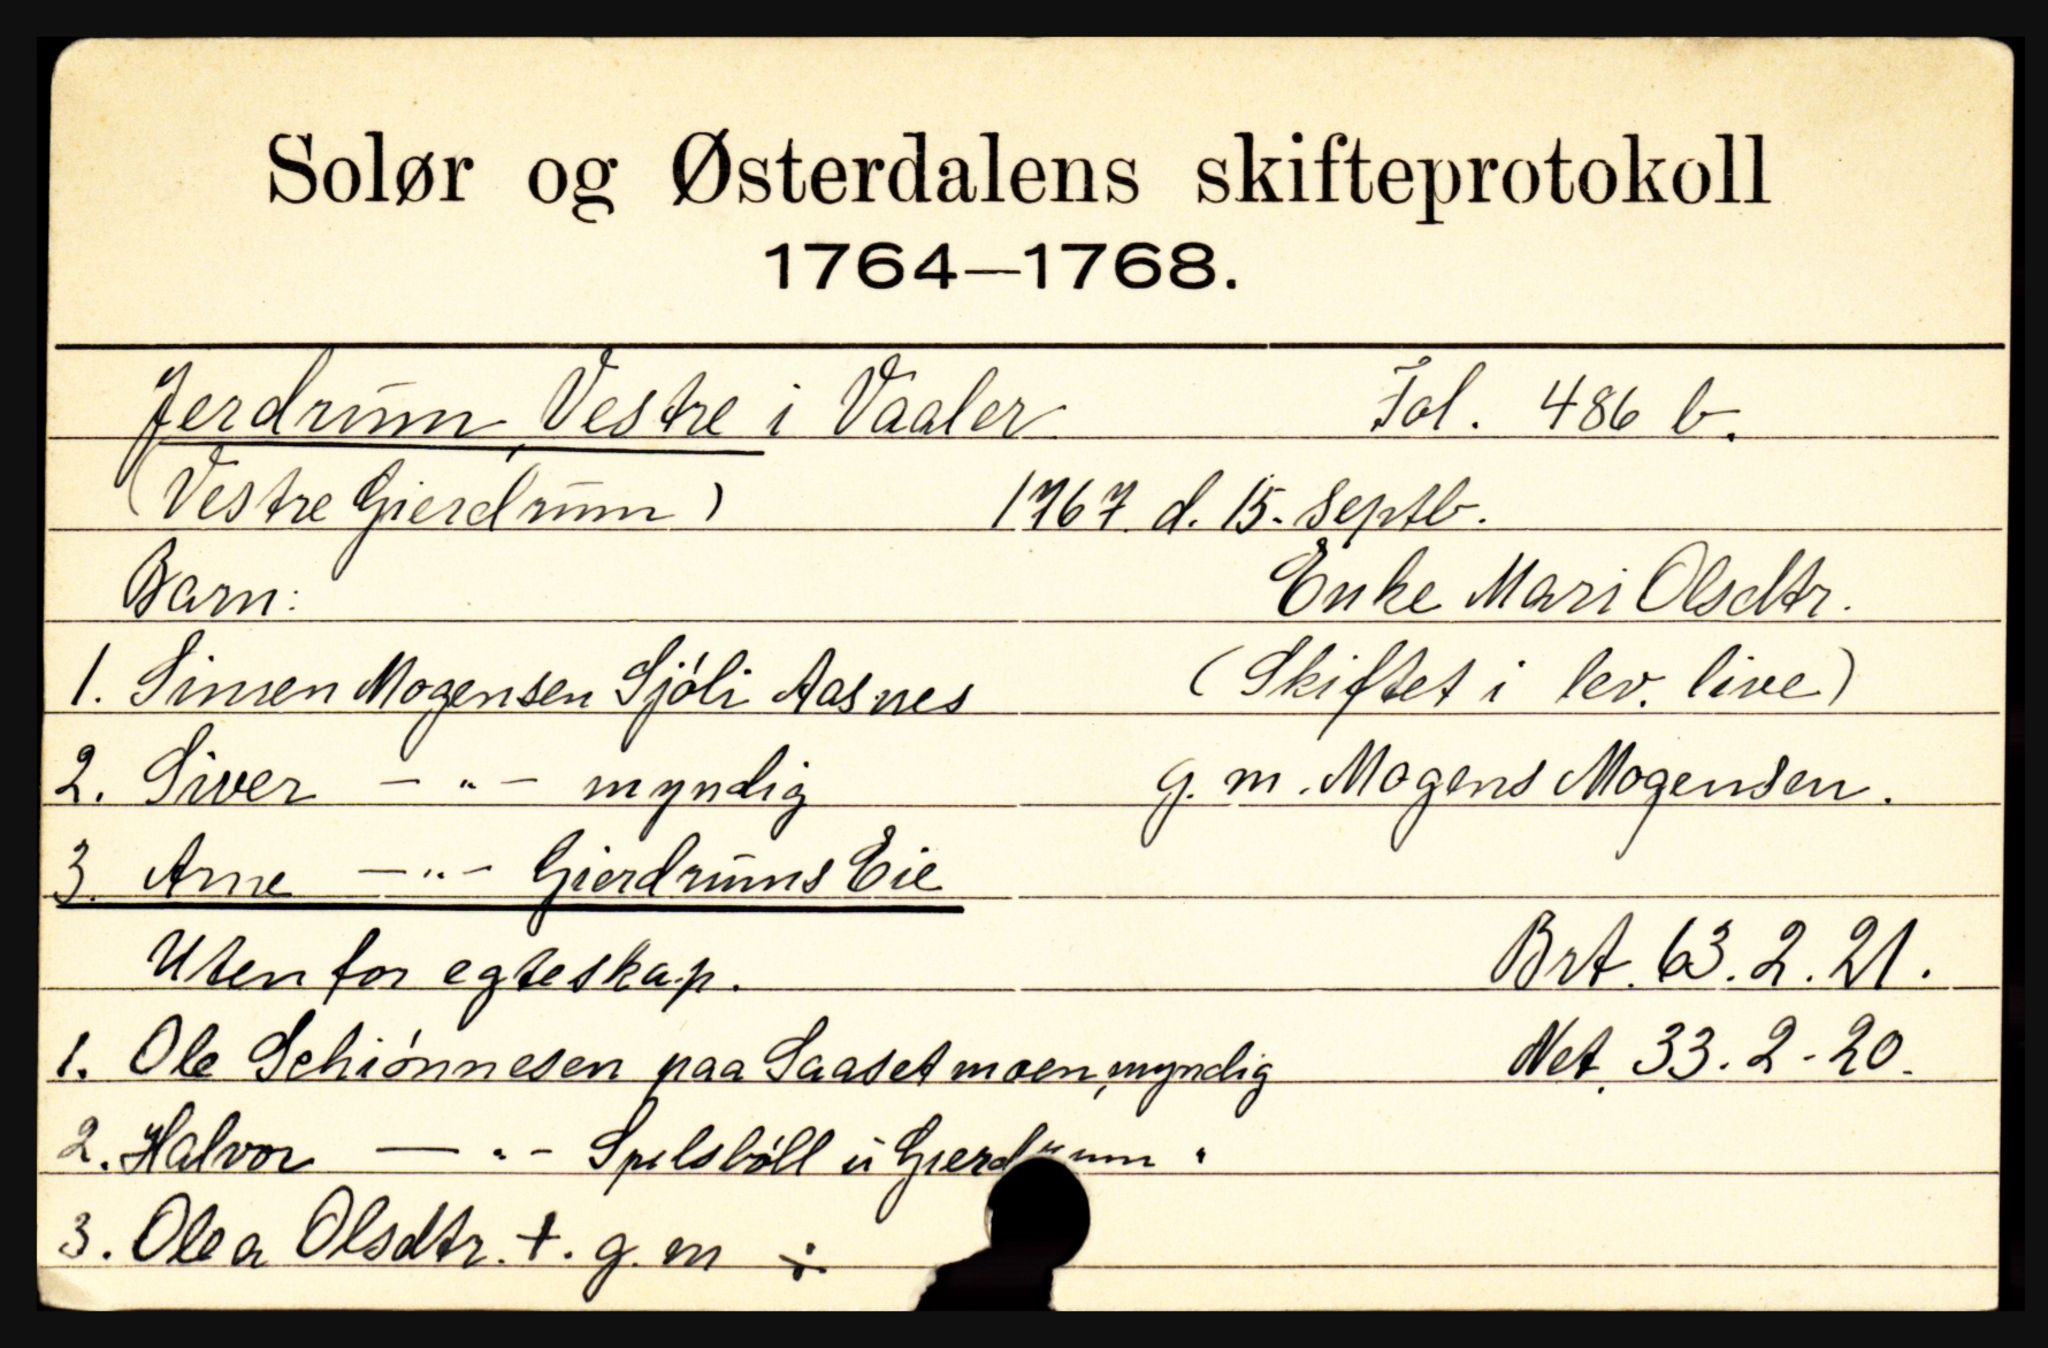 Solør og Østerdalens skifteprotokoll
1764—1768.
Jerdrum, Vestre i Vaaler Fol. 486 b.
(Vestre Gierdrum) 1767 d. 15. Septb.
Barn: Enke Mari Olsdtr.
1. Simen Mogensen Sjóli Aasnes (Skiftet i lev. live)
2. Siver — " — myndig g. m. Mogens Mogensen.
3. Arne — " — Gierdrums Eie
Utenfor egteskap. Brt. 63. 2. 21.
1. Ole Schiónnesen paa Saasetmoen, myndig Net. 33. 2 - 20.
2. Halvor — " — Spelsbóll ú Gierdrum "
3. Olea Olsdtr. †. g. m ÷